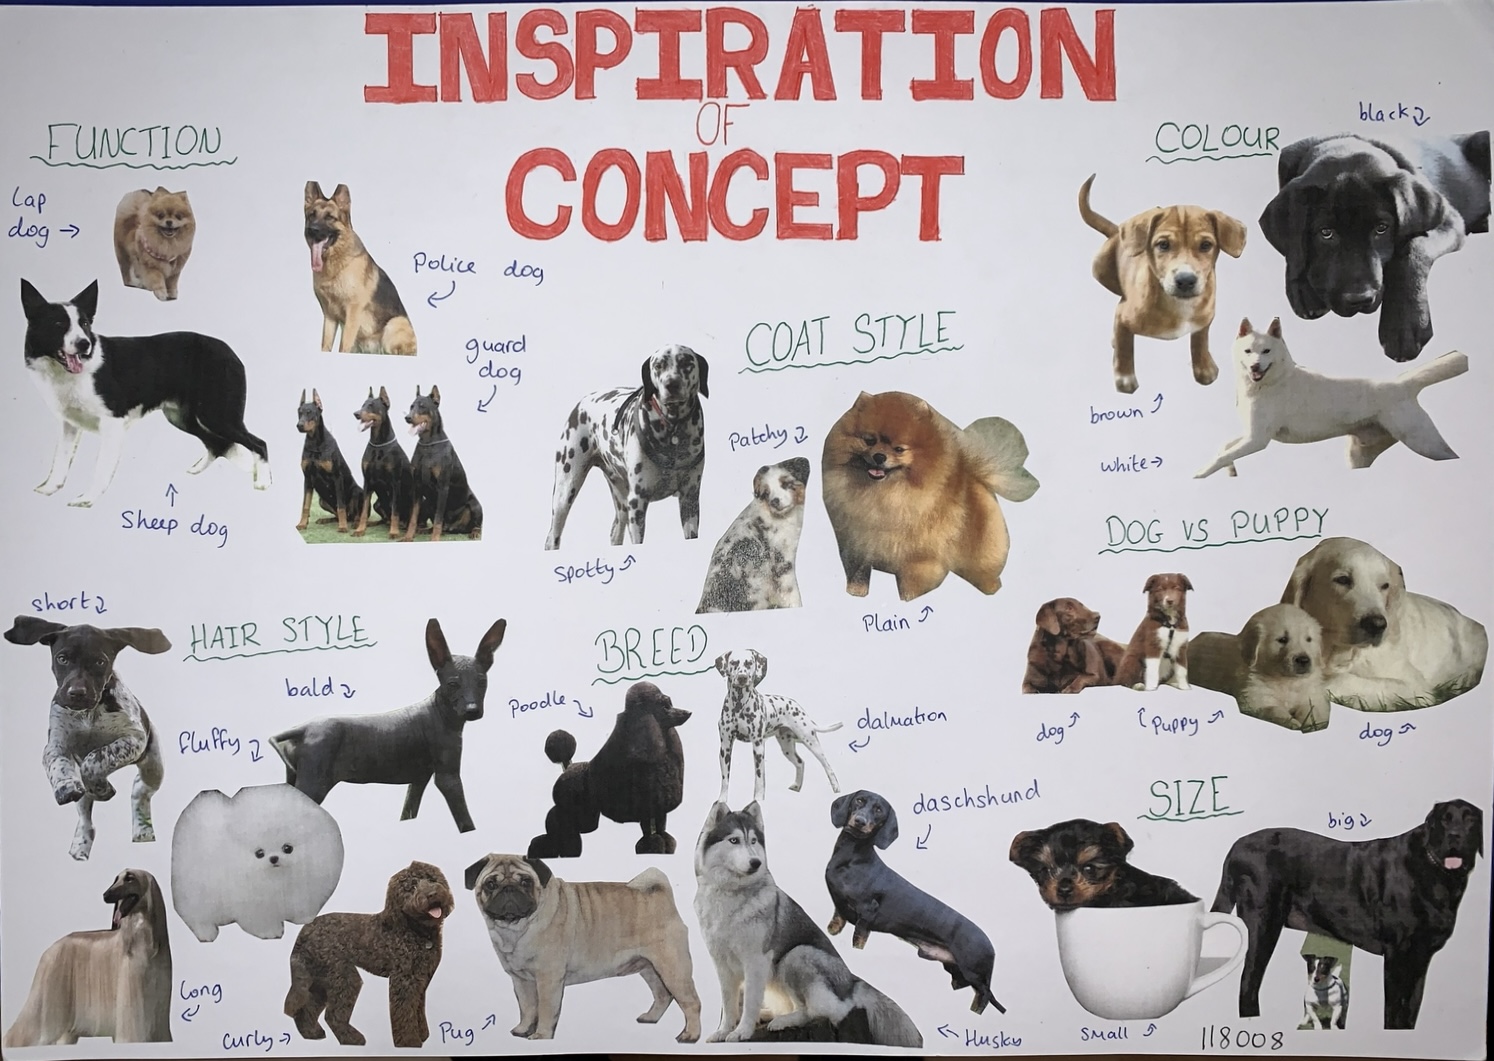 INSPIRATION
OF
CONCEPT
FUNCTION
Lap
dog →
Police dog
guard
dog
Sheep dog
COAT STYLE
Patchy
Spotty
Plain
COLOUR
black
brown
white →
DOG VS PUPPY
dog
puppy
dog
HAIR STYLE
short
bald
fluffy
long
curly →
BREED
Poodle
dalmation
daschshund
Pug
← Husky
SIZE
big
small
118008